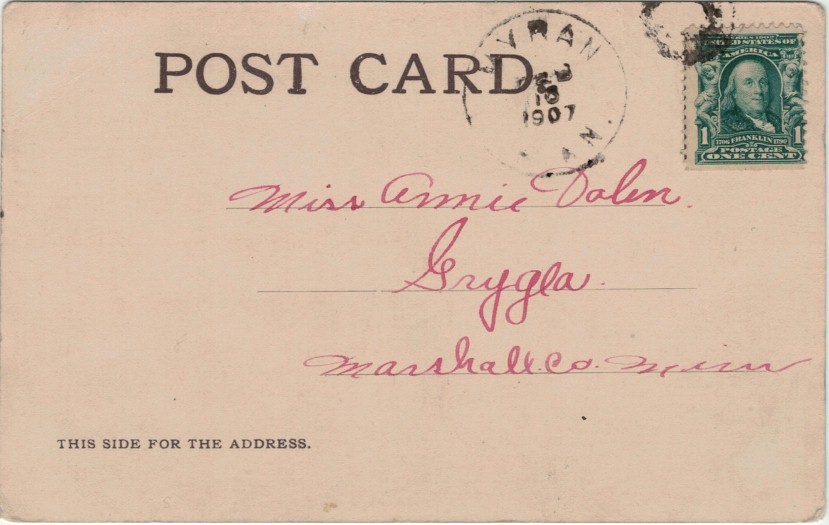 POST CARD.
18
1907
UNITED STATES OF
AMERICA
1 1
1706 FRANKLIN 1790
POSTAGE
ONE CENT
Miss Annie Dolen.
Grygla.
Marshall. Co. Minn
THIS SIDE FOR THE ADDRESS.